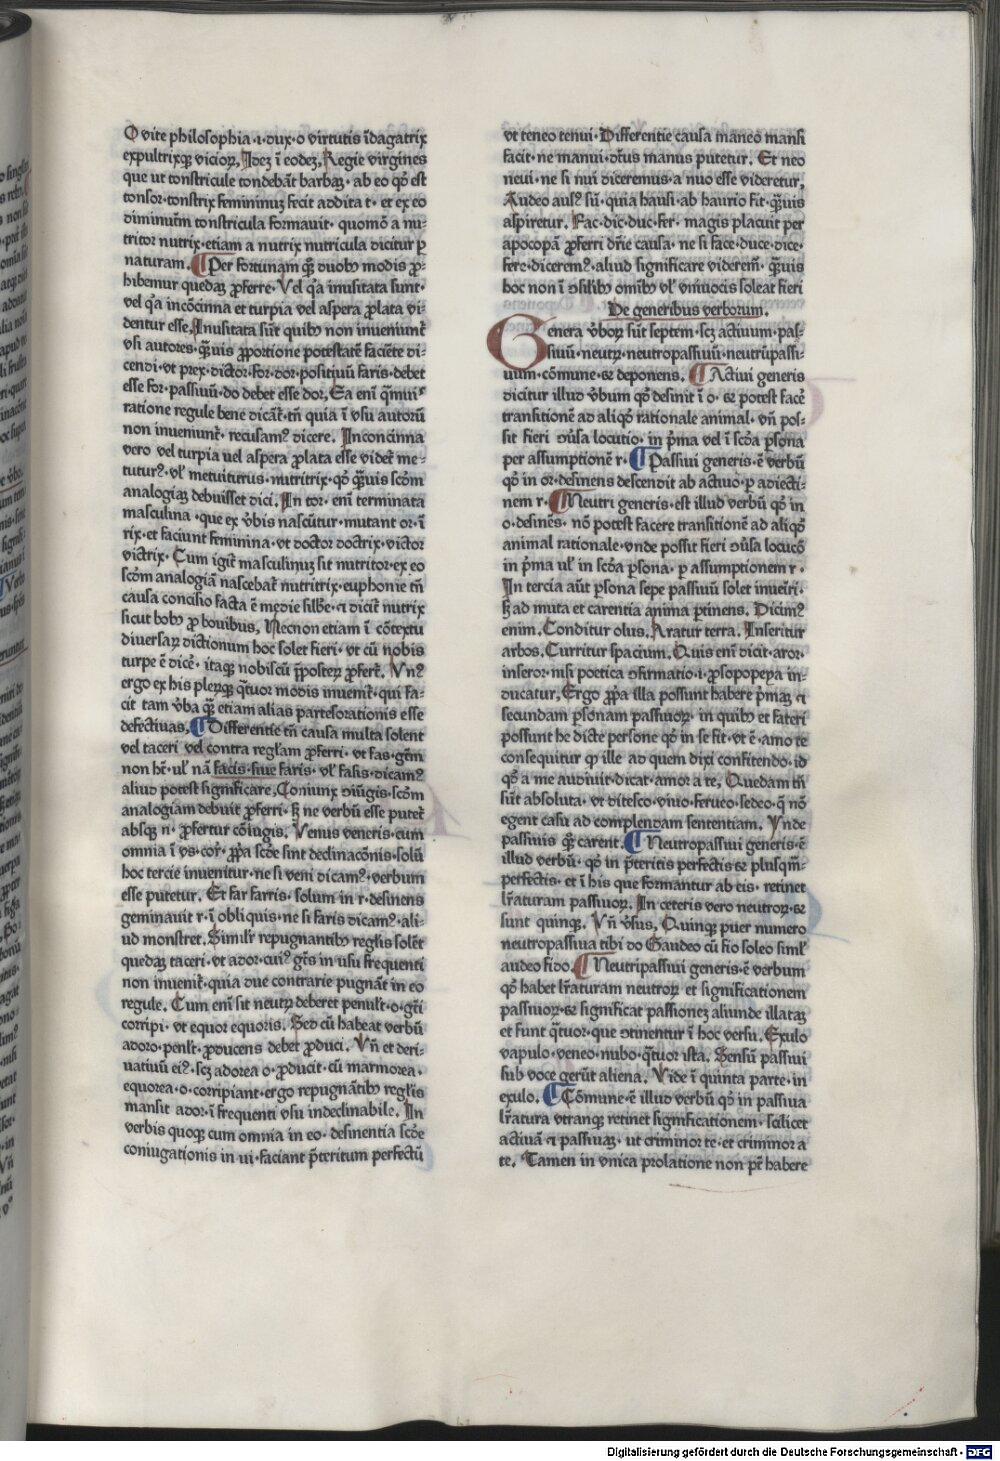 O vite philosophia·i·dux·o virtutis īdagatrix
expultrixqꝫ vicioꝝ, Ideꝫ ī eodeꝫ, Regie virgines
que ut tonstricule tondebāt barbaꝫ· ab eo qđ est
tonsor·tonstrix femininuꝫ fecit addita t· et ex eo
diminutiuū tonstricula formauit· quomō a nu-
tritor nutrix·etiam a nutrix nutricula dicitur ꝑ
naturam. ¶ Per fortunam qꝫ duobꝫ modis ꝓ-
hibemur quedaꝫ ꝓferre· Vel qꝛa inusitata sunt·
vel qꝛa incōcinna et turpia vel aspera ꝓlata vi-
dentur esse, Inusitata sūt quibꝫ non inueniunt̄
vsi autores· qꝫuis ꝓportione potestatē faciēte di-
cendi·vt prex·dictor·for·dor·positiuū faris·debet
esse for·passiuū·do debet esse dor, Ea enī qꝫuis
ratione regule bene dicāt̄·tn̄ quia ī vsu autorū
non inueniunt̄· recusamꝰ dicere. Inconcinna
vero vel turpia uel aspera ꝓlata esse videt̄ me-
tuturꝰ· vl̄ metuiturus· nutritrix· qđ qꝫuis scđm
analogiaꝫ debuisset dici. In tor· enī terminata
masculina·que ex v̄bis nascūtur·mutant or·ī
rix·et faciunt feminina·vt doctor doctrix·victor
victrix. Cum igit̄ masculinuꝫ sit nutritor·ex eo
scđm analogiā nascebat̄ nutritrix·euphonie tn̄
causa concisio facta ē medie sillbe·⁊ dicit̄ nutrix
sicut bobꝫ ꝓ bouibus, Necnon etiam ī cōtextu
diuersaꝝ dictionum hoc solet fieri·vt cū nobis
turpe ē dicē· itaqꝫ nobiscū p̄posterꝫ ꝓfert̄. Vnꝰ
ergo ex his pleꝝqꝫ qtuor modis inuenit̄· qui fa-
cit tam v̄ba qꝫ etiam alias partes orationis esse
defectiuas. ¶ Differentie tn̄ causa multa solent
vel taceri vel contra regl̄am ꝓferri· vt fas·gt̄m
non ht̄· ul̄ nā facis·siue faris· vl̄ fasis·dicamꝰ
aliud potest significare, Coniunx ↄiūgis·scđm
analogiam debuit ꝓferri· sꝫ ne verbū esse putet̄
absqꝫ n· ꝓfertur cōiugis, Venus veneris·cum
omnia ī vs·cor̄· ꝓpa scđe sint declinacōnis·solū
hoc tercie inuenitur·ne si veni dicamꝰ·verbum
esse putetur. Et far farris· solum in r·desinens
geminauit r·ī obliquis·ne si faris dicamꝰ·ali-
ud monstret. Simil̄r repugnantibꝫ regl̄is solēt
quedaꝫ taceri·vt ador·cuiꝰ gt̄s in usu frequenti
non inuenit̄·quia due contrarie pugnāt in eo
regule. Cum enī sit neutꝝ deberet penult̄·o·gt̄i
corripi·vt equor equoris. Sed cū habeat verbū
adoro·penlt̄·ꝓducens debet ꝓduci. Vn̄ et deri-
uatiuū eiꝰ·scꝫ adorea o·ꝓducit·cū marmorea·
equorea·o·corripiant·ergo repugnātibꝫ regl̄is
mansit ador·ī frequenti vsu indeclinabile. In
verbis quoqꝫ cum omnia in eo·desinentia scđe
coniugationis in ui·faciant p̄teritum perfectū
vt teneo tenui·Differentie causa maneo mansi
facit·ne manui·dt̄us manus putetur. Et neo
neui·ne si nui diceremus·a nuo esse videretur,
Audeo ausꝰ sū·quia hausi·ab haurio fit·qꝫuis
aspiretur. Fac·dic·duc·fer·magis placuit per
apocopā ꝓferri dn̄ie causa·ne si face·duce·dice·
fere·diceremꝰ·aliud significare viderem̄·qꝫuis
hoc non ī ↄsilibꝫ omībꝫ vl̄ vniuocis soleat fieri
De generibus verborum.
Genera v̄boꝝ sūt septem·scꝫ actiuum·pas-
siuū·neutꝝ·neutropassiuū·neutrūpassi-
uum·cōmune·⁊ deponens. ¶ Actiui generis
dicitur illud v̄bum qđ desinit ī o·⁊ potest facē
transitionē ad aliqđ rationale animal· vn̄ pos-
sit fieri ↄūsa locutio· in p̄ma vel ī scđa ꝑsona
per assumptionē r· ¶ Passiui generis·ē verbū
qđ in or·desinens descendit ab actiuo·ꝑ adiecti-
nem r· ¶ Neutri generis·est illud verbū qđ in
o·desinēs·nō potest facere transitionē ad aliqđ
animal rationale·vnde possit fieri ↄūsa locucō
in p̄ma ul̄ in scđa ꝑsona·ꝑ assumptionem r·
In tercia aūt ꝑsona sepe passiuū solet inueīri·
sꝫ ad muta et carentia anima ꝑtinens. Dicimꝰ
enim, Conditur olus, Aratur terra. Inseritur
arbos, Curritur spacium, Quis enī dicit·aror·
inseror·nisi poetica ↄfirmatio·i·ꝓsopopeya in-
ducatur, Ergo ꝓpa illa possunt habere p̄maꝫ ⁊
secundam ꝑsonam passiuoꝝ·in quibꝫ et fateri
possunt he dicte persone qđ in se fit·vt ē·amo te
consequitur ꝙ ille ad quem dixi confitendo·id
qđ a me audiuit·dicat·amor a te, Quedam tn̄
sūt absoluta·vt ditesco·viuo·ferueo·sedeo·q̄ nō
egent casu ad complendam sententiam. Vnde
passiuis qꝫ carent. ¶ Neutropassiui generis·ē
illud verbū·qđ in p̄teritis perfectis ⁊ plusqm̄-
perfectis·et ī his que formantur ab eis·retinet
lr̄aturam passiuoꝝ. In ceteris vero neutroꝝ·⁊
sunt quinqꝫ. Vn̄ v̄sus, Quinqꝫ puer numero
neutropassiua tibi do Gaudeo cū fio soleo siml̄
audeo fido. ¶ Neutripassiui generis·ē verbum
qđ habet lr̄aturam neutroꝝ et significationem
passiuoꝝ·⁊ significat passioneꝫ aliunde illataꝫ
et sunt qtuor·que ↄtinentur ī hoc versu. Exulo
vapulo·veneo·nubo·qtuor ista. Sensū passiui
sub voce gerūt aliena. Vide ī quinta parte·in
exulo. ¶ Cōmune·ē illud verbū qđ in passiua
lr̄atura vtranqꝫ retinet significationem·scilicet
actiuā ⁊ passiuaꝫ·ut criminor te·et criminor a
te. Tamen in vnica prolatione non pt̄ habere
Digitalisierung gefördert durch die Deutsche Forschungsgemeinschaft - DFG